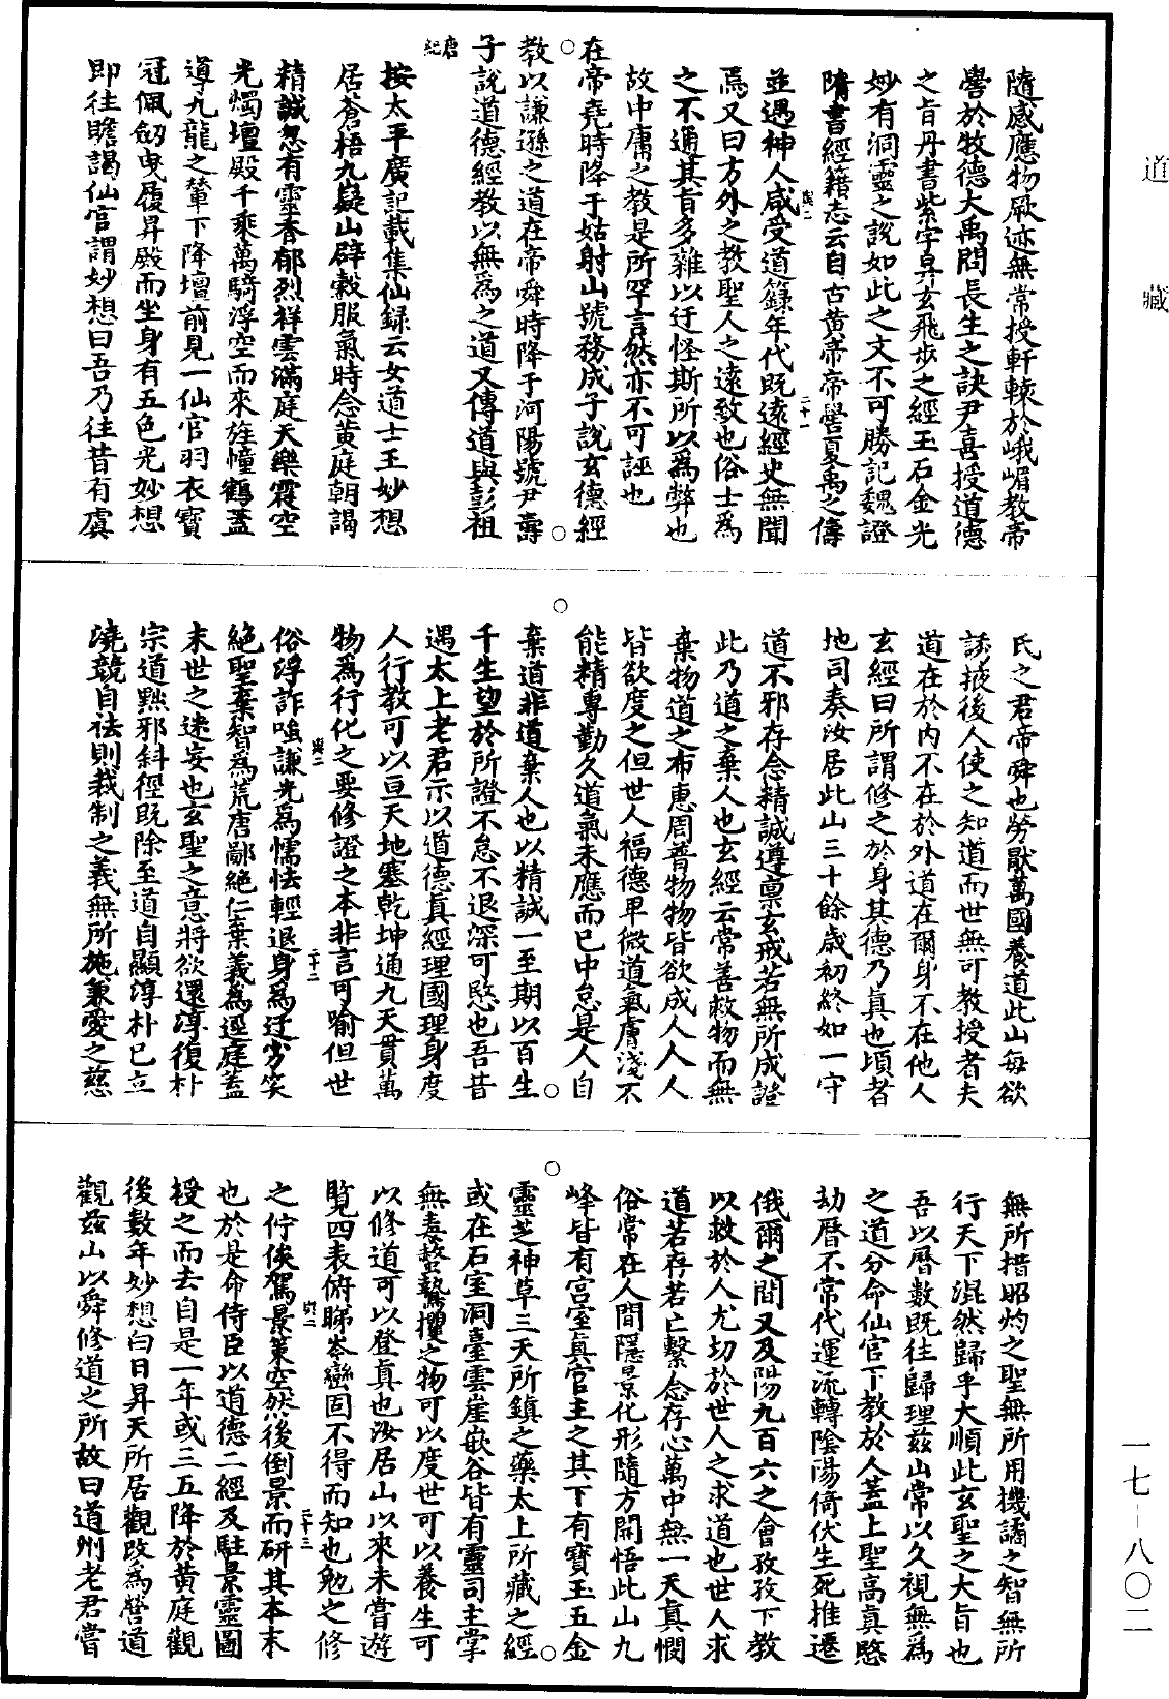 道藏
隨感應物厥迹無常授軒轅於峨嵋教帝
嚳於牧德大禹問長生之訣尹喜授道德
之旨丹書紫字昇玄飛步之經玉石金光
妙有洞靈之說如此之文不可勝記魏證
隋書經籍志云自古黃帝帝嚳夏禹之儔
與二 二十一
並遇神人咸受道籙年代既遠經史無聞
焉又曰方外之教聖人之遠致也俗士為
之不通其旨多雜以迂怪斯所以為弊也
故中庸之教是所罕言然亦不可誣也
○在帝堯時降于姑射山號務成子說玄德經
教以謙遜之道在帝舜時降于河陽號尹壽
子說道德經教以無為之道又傳道與彭祖
唐紀
按太平廣記載集仙錄云女道士王妙想
居蒼梧九嶷山辟穀服氣時念黃庭朝謁
精誠忽有靈香郁烈祥雲滿庭天樂震空
光燭壇殿千乘萬騎浮空而來旌幢鶴蓋
導九龍之輦下降壇前見一仙官羽衣寶
冠佩劒曳履昇殿而坐身有五色光妙想
即往瞻謁仙官謂妙想曰吾乃往昔有虞
氏之君帝舜也勞厭萬國養道此山每欲
誘掖後人使之知道而世無可教授者夫
道在於內不在於外道在爾身不在他人
玄經曰所謂修之於身其德乃真也頃者
地司奏汝居此山三十餘歲初終如一守
道不邪存念精誠遵稟玄戒若無所成證
此乃道之棄人也玄經云常善救物而無
棄物道之布惠周普物物皆欲成人人人
皆欲度之但世人福德卑微道氣膚淺不
能精專勤久道氣未應而已中怠是人自
棄道非道棄人也以精誠一至期以百生
千生望於所證不怠不退深可愍也吾昔
遇太上老君示以道德真經理國理身度
人行教可以亘天地塞乾坤通九天貫萬
物為行化之要修證之本非言可喻但世
與二 二十二
俗浮詐嗤謙光為懦怯輕退身為迂劣笑
絕聖棄智為荒唐鄙絕仁棄義為逕庭蓋
末世之迷妄也玄聖之意將欲還淳復朴
宗道黜邪斜徑既除至道自顯淳朴已立
澆競自袪則裁制之義無所施兼愛之慈
無所措昭灼之聖無所用機譎之智無所
行天下混然歸乎大順此玄聖之大旨也
吾以曆數既往歸理茲山常以久視無為
之道分命仙官下教於人蓋上聖高真愍
劫曆不常代運流轉陰陽倚伏生死推遷
俄爾之間又及陽九百六之會孜孜下教
以救於人尤切於世人之求道也世人求
道若存若亡繫念存心萬中無一天真憫
俗常在人間隱景化形隨方開悟此山九
峰皆有宮室真官主之其下有寶玉五金
靈芝神草三天所鎮之藥太上所藏之經
或在石室洞臺雲崖嵌谷皆有靈司主掌
無毒螫鷙攫之物可以度世可以養生可
以修道可以登真也汝居山以來未嘗遊
覽四表俯睇岑巒固不得而知也勉之修
與二 二十三
之佇俟駕景策空然後倒景而研其本末
也於是命侍臣以道德二經及駐景靈圖
授之而去自是一年或三五降於黃庭觀
後數年妙想白日昇天所居觀改為營道
觀茲山以舜修道之所故曰道州老君嘗
一七－八〇二